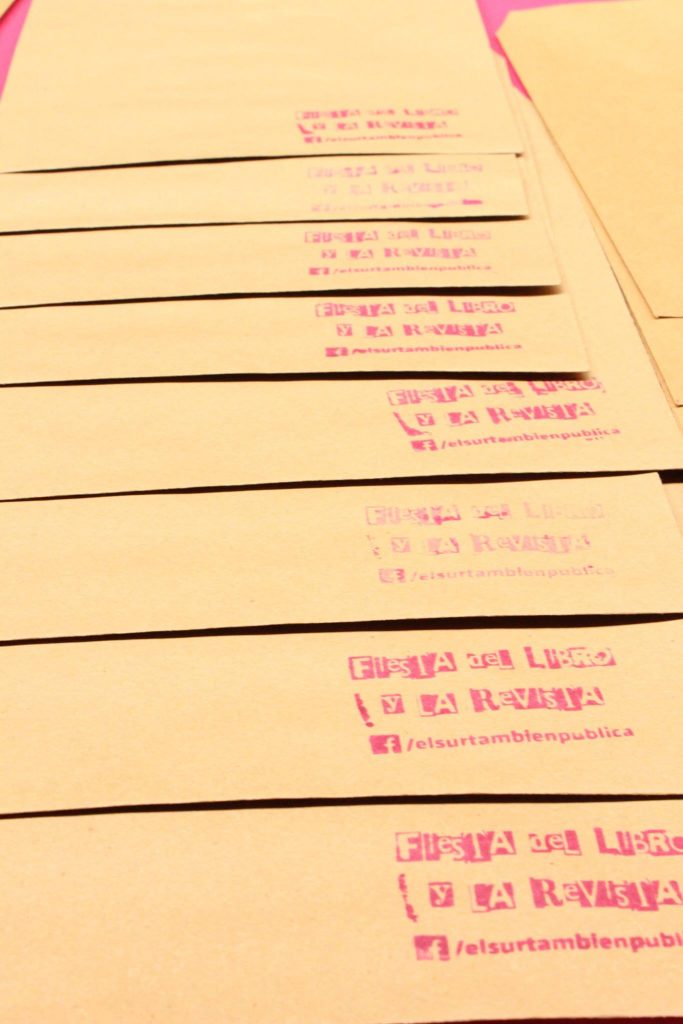 FIESTA del LIBRO
y LA REVISTA
f/elsurtambienpublica
FIESTA del LIBRO
y LA REVISTA
FIESTA del LIBRO
y LA REVISTA
f/elsurtambienpublica
FIESTA del LIBRO
y LA REVISTA
f/elsurtambienpublica
FIESTA del LIBRO
y LA REVISTA
f/elsurtambienpublica
FIESTA del LIBRO
y LA REVISTA
f/elsurtambienpublica
FIESTA del LIBRO
y LA REVISTA
f/elsurtambienpublica
FIESTA del LIBRO
y LA REVISTA
f/elsurtambienpubli